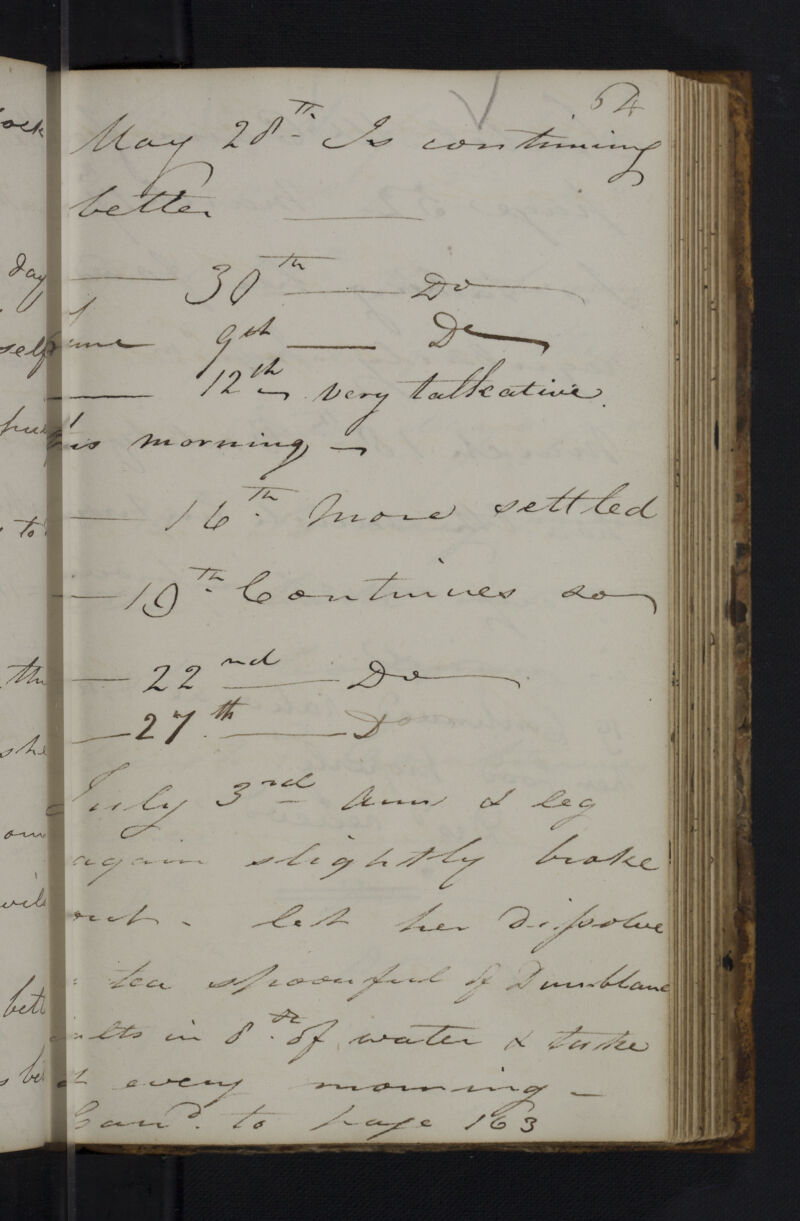 64
May 28th. Is continuing
better ———
—— 30th —— Do
June 9th —— Do
—— 12th very talkative
this morning —
— 16th. More settled
— 19th. Continues so
— 22nd —— Do
— 27th. —— Do
July 3rd Arm & leg
again slightly broke
out - let her dissolve
a tea spoonful of Dunblane
salts in of water & take
it every morning -
Carrd. to page 163